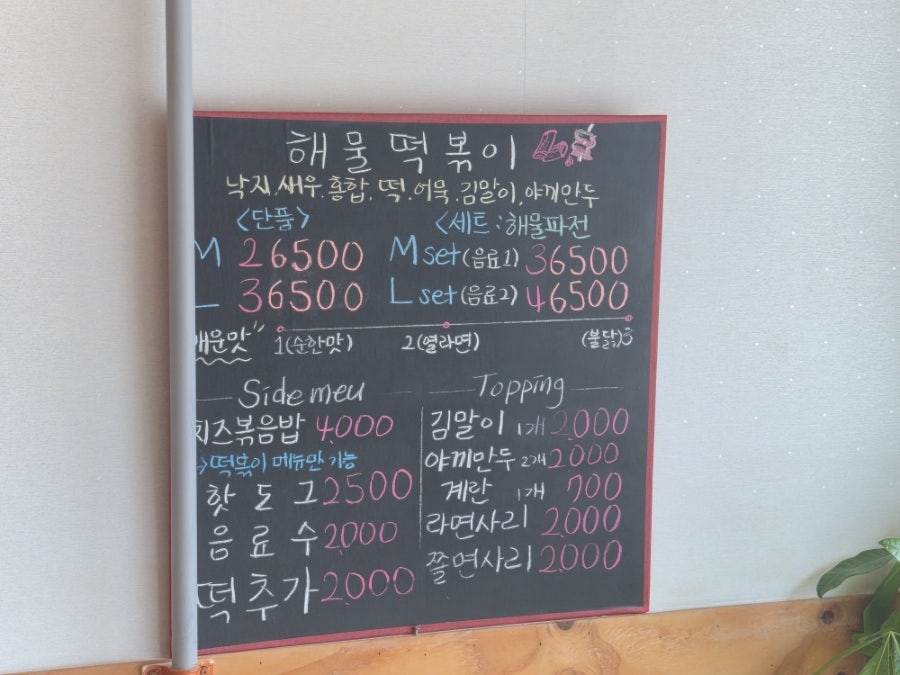 해물떡볶이
낙지.새우.홍합.떡.어묵.김말이.야끼만두
<단품>
M 26500
L 36500
<세트:해물파전
M set(음료1) 36500
L set(음료2) 46500
매운맛"
1(순한맛) 2(열라면) (불닭)3
Side meu
치즈볶음밥 4,000
→떡볶이 메뉴만 가능
핫도그 2500
음료수 2,000
떡추가 2,000
Topping
김말이 1개 2,000
야끼만두 2개 2000
계란 1개 700
라면사리 2,000
쫄면사리 2,000